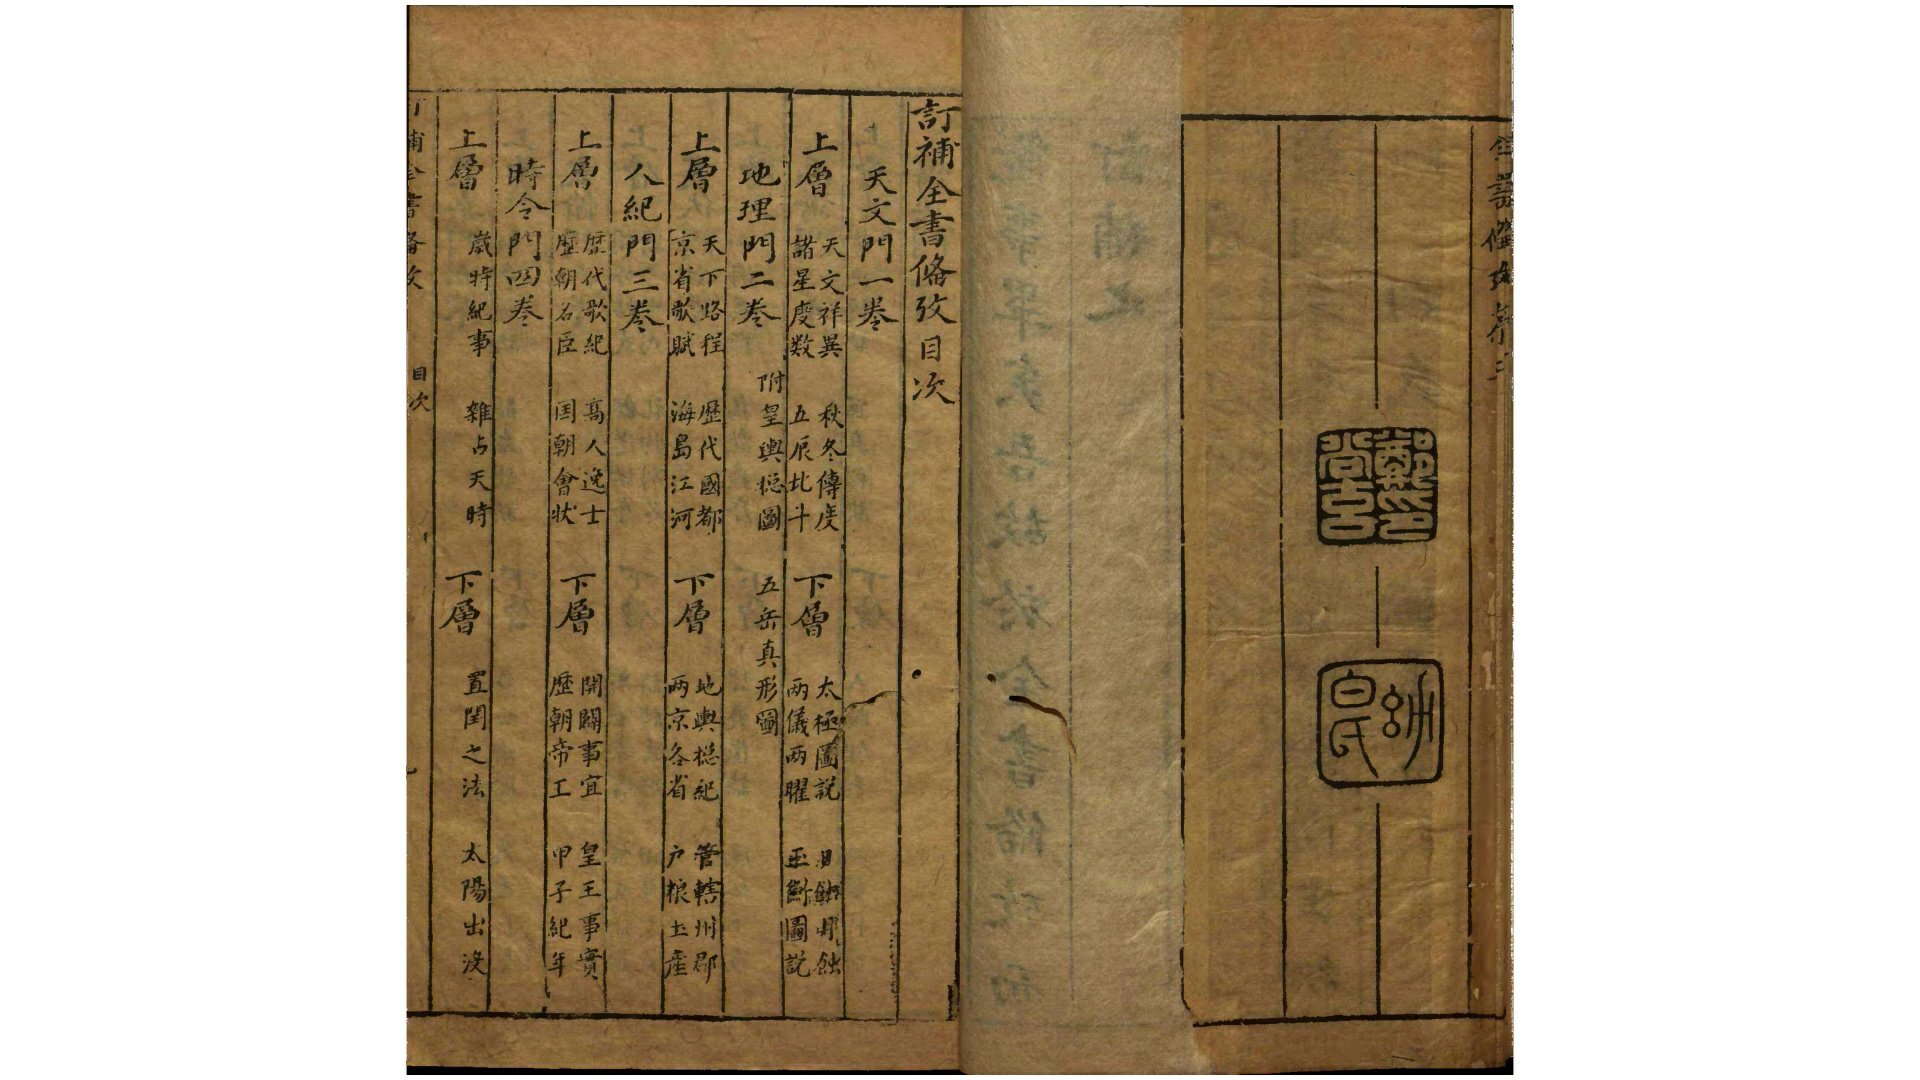 鄭印尚玄
幼白氏
訂補全書俻攷目次
天文門一卷
上層
天文祥異 秋冬傳度
諸星度数 五辰北斗
下層
太極圖説 日蝕月蝕
兩儀兩曜 玉衡圖説
地理門二卷
附皇輿總圖 五岳真形圖
上層
天下路程 歷代國都
京省歌賦 海島江河
下層
地輿總紀 管轄州郡
兩京各省 户粮土産
人紀門三卷
上層
歷代歌紀 高人逸士
歷朝名臣 国朝會狀
下層
開闢事宜 皇王事實
歷朝帝王 甲子紀年
時令門四卷
上層
歲時紀事 雜占天時
下層
置閏之法 太陽出没
訂補全書俻攷 目次